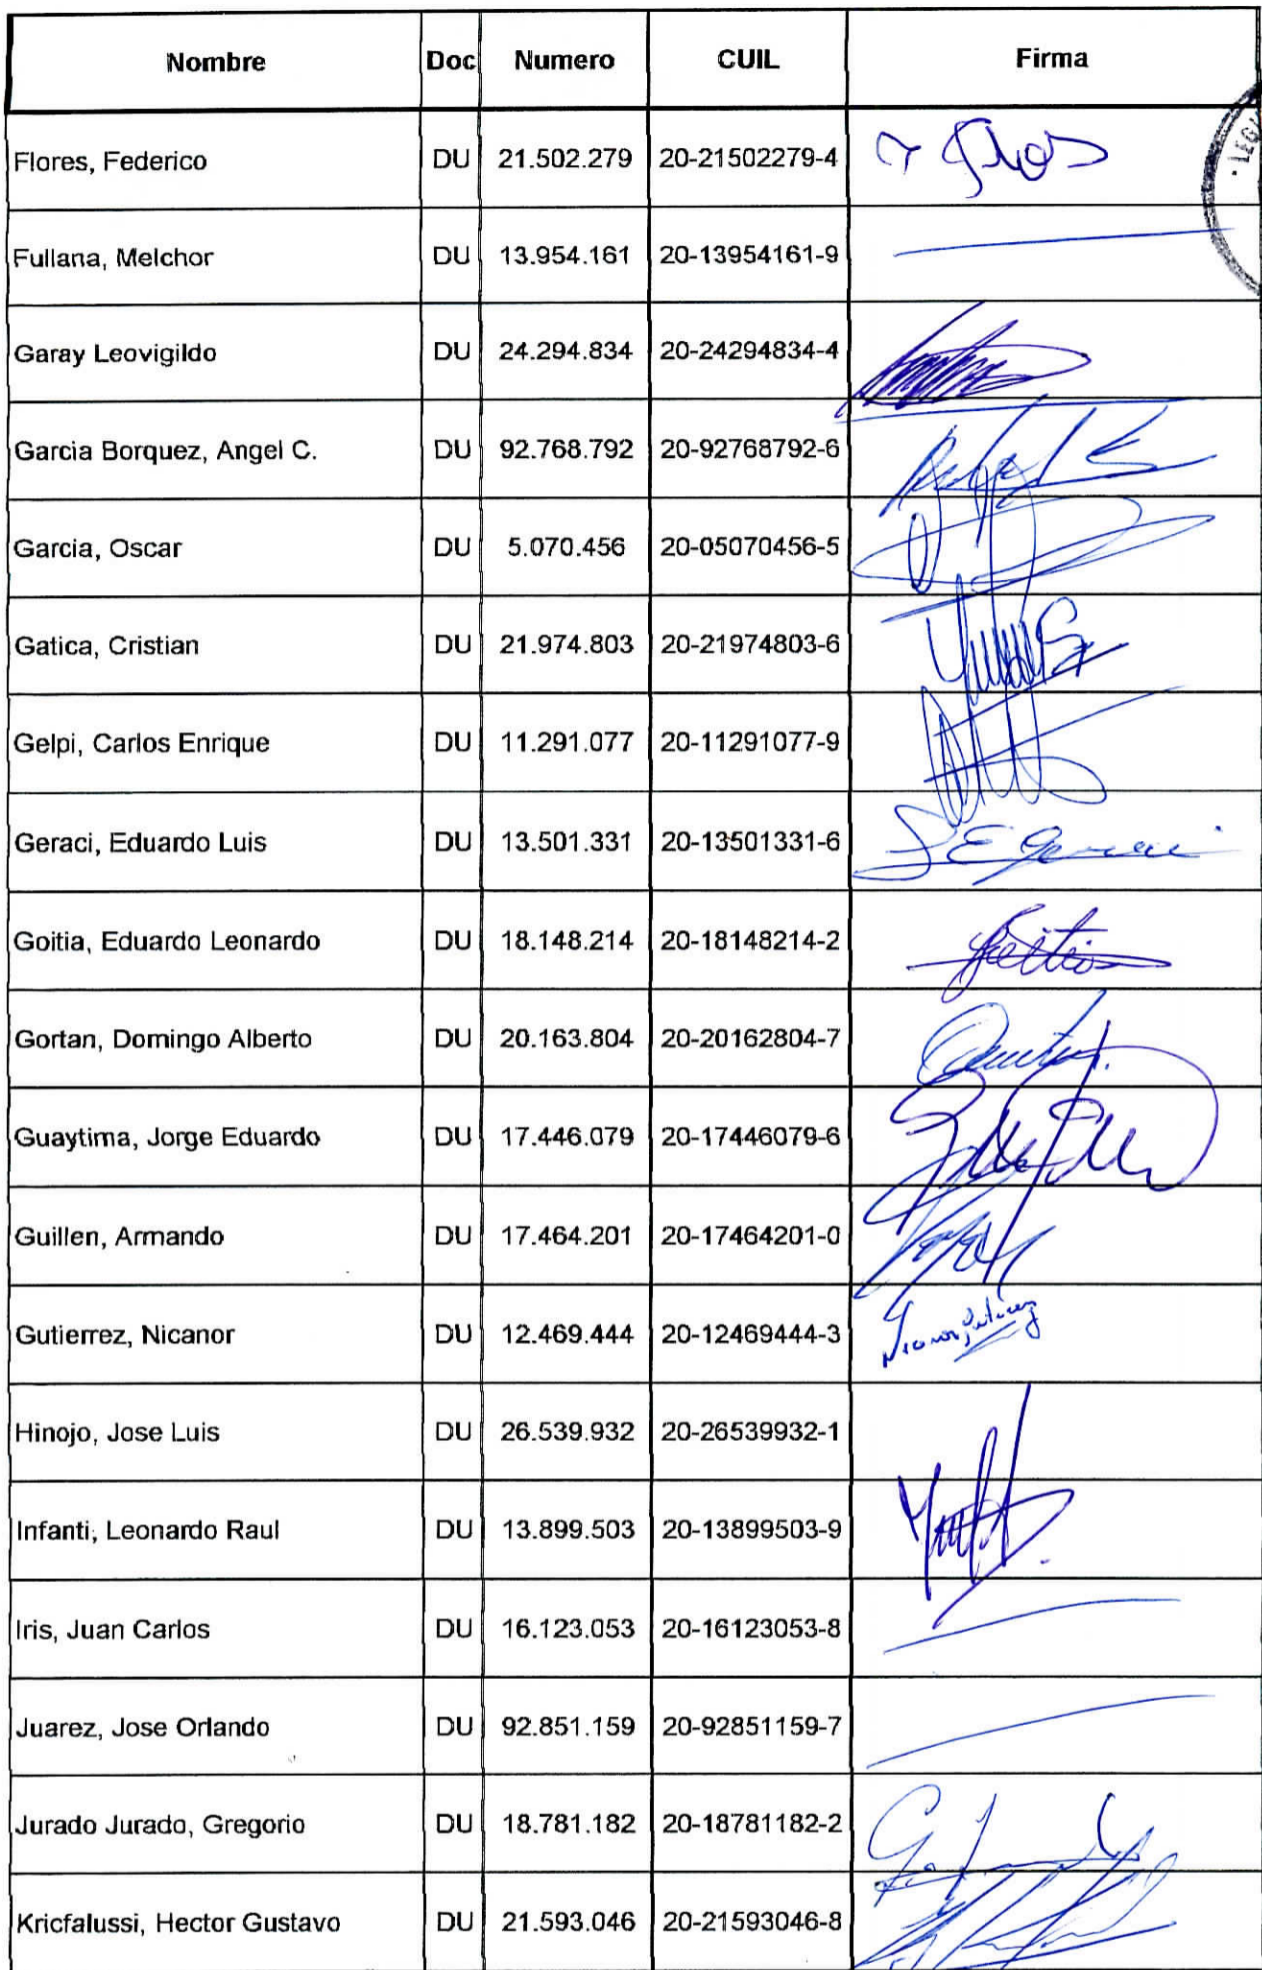 Nombre Doc Numero CUIL Firma
Flores, Federico DU 21.502.279 20-21502279-4
Fullana, Melchor DU 13.954.161 20-13954161-9
Garay Leovigildo DU 24.294.834 20-24294834-4
Garcia Borquez, Angel C. DU 92.768.792 20-92768792-6
Garcia, Oscar DU 5.070.456 20-05070456-5
Gatica, Cristian DU 21.974.803 20-21974803-6
Gelpi, Carlos Enrique DU 11.291.077 20-11291077-9
Geraci, Eduardo Luis DU 13.501.331 20-13501331-6 E Geraci
Goitia, Eduardo Leonardo DU 18.148.214 20-18148214-2 Goitia
Gortan, Domingo Alberto DU 20.163.804 20-20162804-7
Guaytima, Jorge Eduardo DU 17.446.079 20-17446079-6
Guillen, Armando DU 17.464.201 20-17464201-0
Gutierrez, Nicanor DU 12.469.444 20-12469444-3 Nicanor Gutierrez
Hinojo, Jose Luis DU 26.539.932 20-26539932-1
Infanti, Leonardo Raul DU 13.899.503 20-13899503-9
Iris, Juan Carlos DU 16.123.053 20-16123053-8
Juarez, Jose Orlando DU 92.851.159 20-92851159-7
Jurado Jurado, Gregorio DU 18.781.182 20-18781182-2
Kricfalussi, Hector Gustavo DU 21.593.046 20-21593046-8